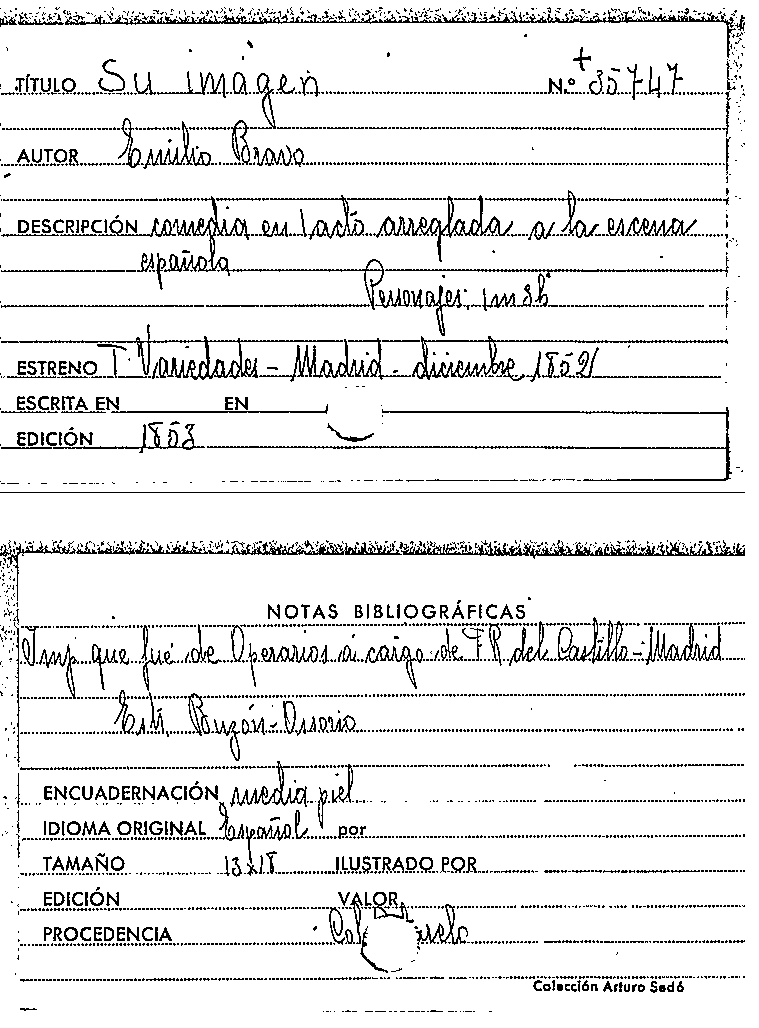 TÍTULO Su imágen N.º + 35747
AUTOR Emilio Bravo
DESCRIPCIÓN comedia en 1 acto arreglada a la escena
española
Personajes: 1m 3h
ESTRENO T. Variedades - Madrid - diciembre 1852
ESCRITA EN EN
EDICIÓN 1853
NOTAS BIBLIOGRÁFICAS
Imp que fué de Operarios á cargo de F R del Castillo - Madrid
Buzón - Ossorio
ENCUADERNACIÓN media piel
IDIOMA ORIGINAL Español por
TAMAÑO 13x18 ILUSTRADO POR
EDICIÓN VALOR
PROCEDENCIA Col
Colección Arturo Sedó